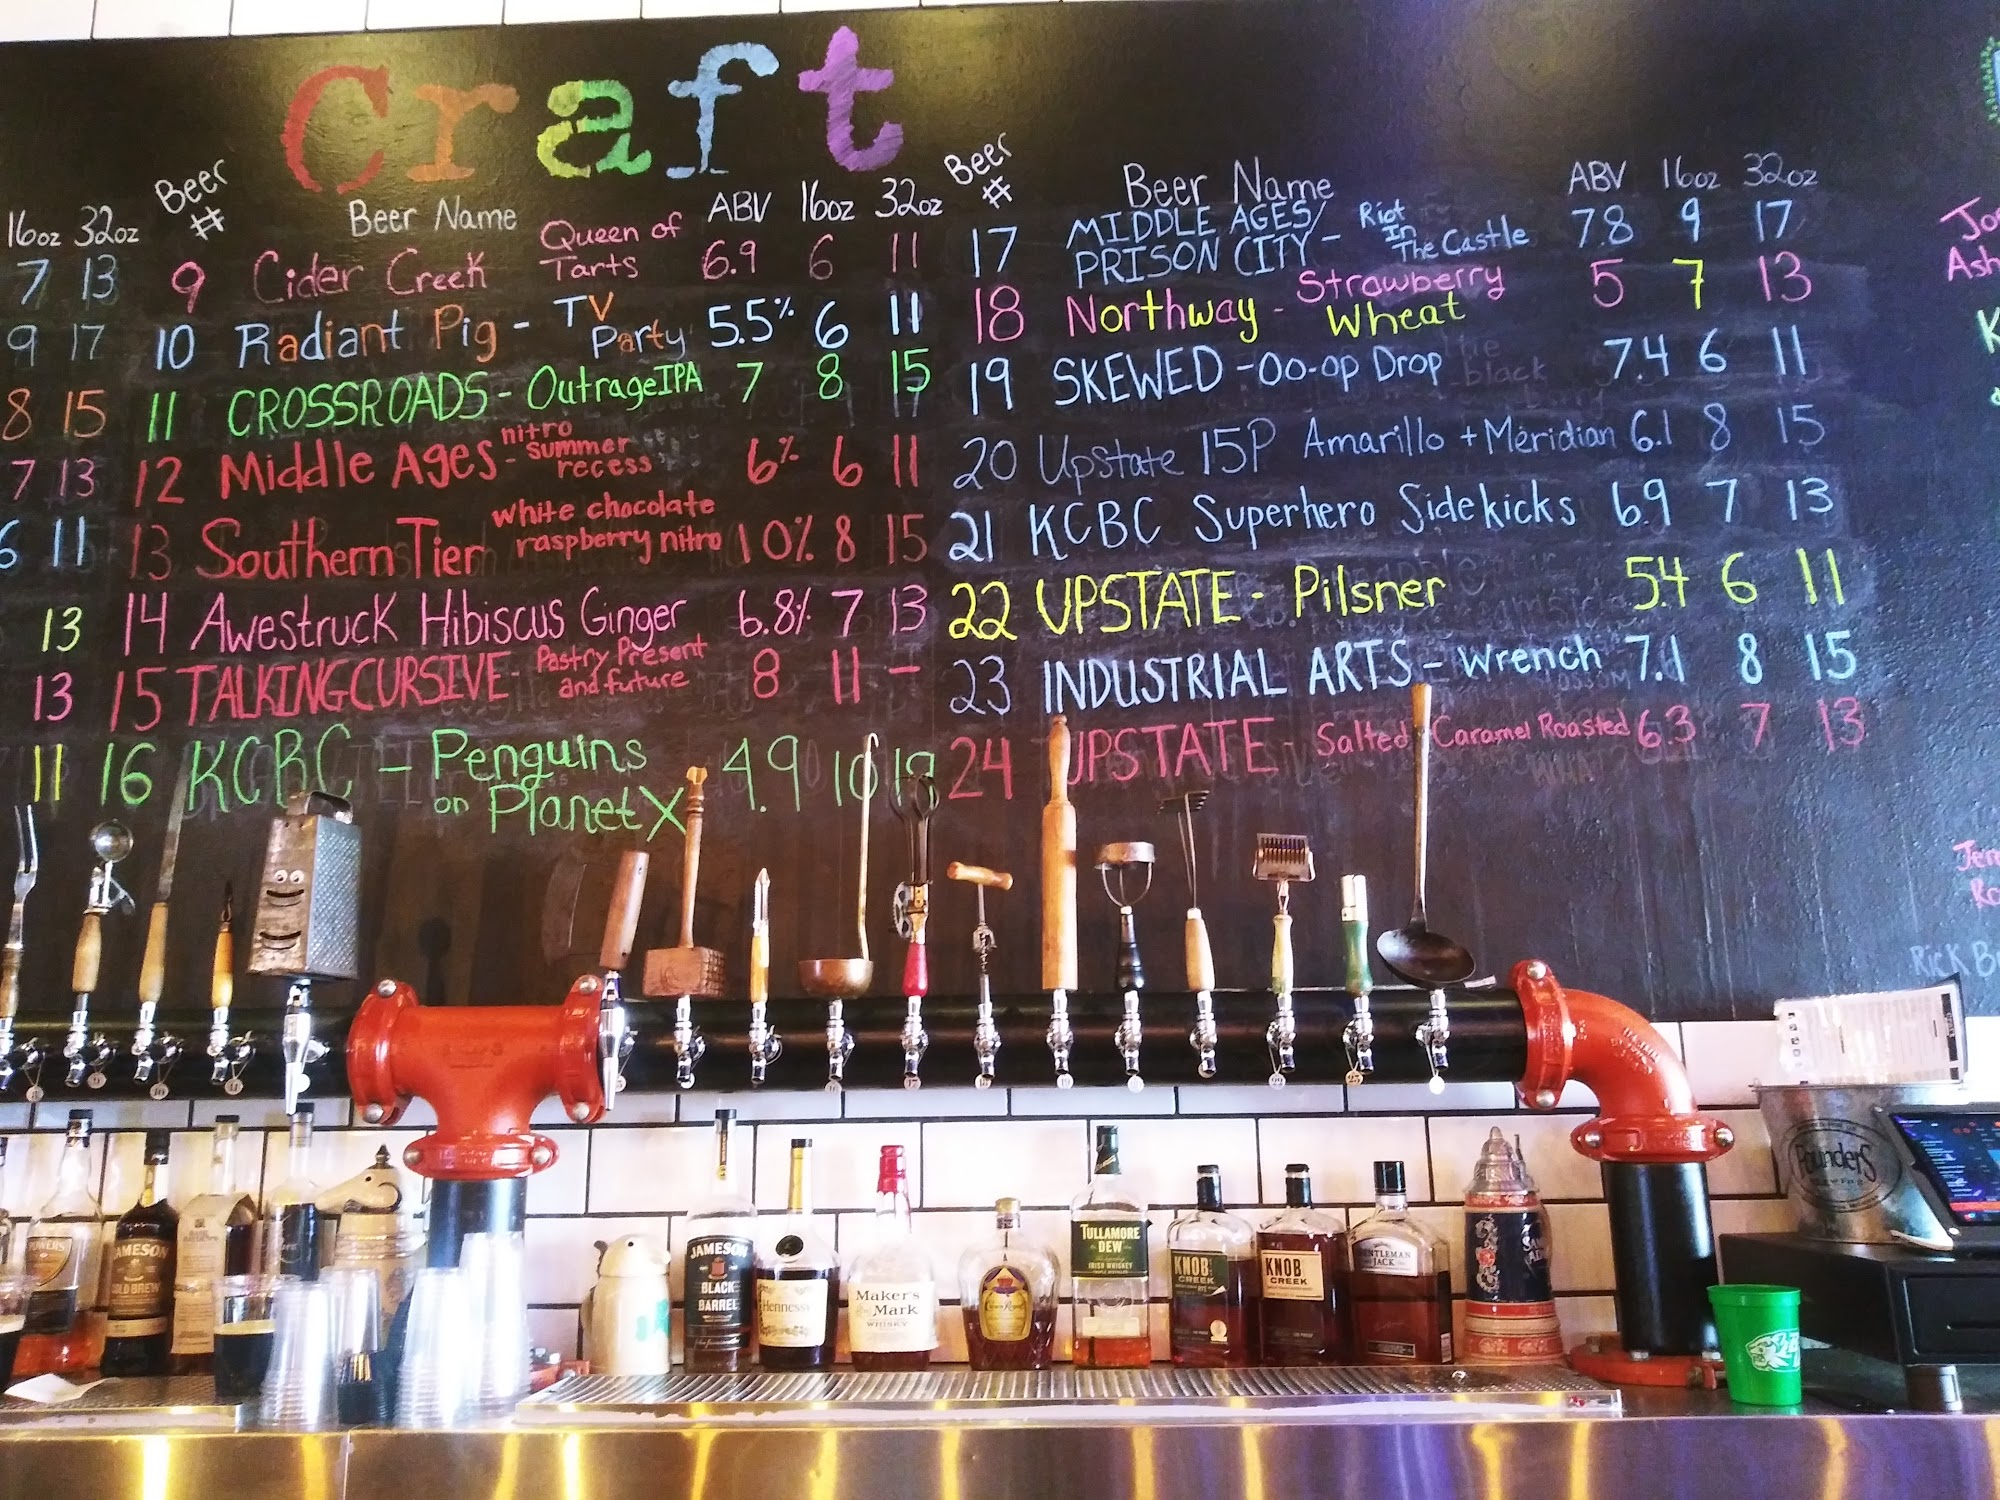 Craft
16oz 32oz
7 13
9 17
8 15
7 13
6 11
13
13
11
Beer # Beer Name ABV 16oz 32oz
9 Cider Creek Queen of Tarts 6.9 6 11
10 Radiant Pig - TV Party 5.5% 6 11
11 CROSSROADS - Outrage IPA 7 8 15
12 Middle Ages - nitro summer recess 6% 6 11
13 Southern Tier white chocolate raspberry nitro 10% 8 15
14 Awestruck Hibiscus Ginger 6.8% 7 13
15 TALKING CURSIVE - Pastry Present and future 8 11 -
16 KCBC - Penguins on Planet X 4.9 10 19
Beer # Beer Name ABV 16oz 32oz
17 MIDDLE AGES/ PRISON CITY - Riot In The Castle 7.8 9 17
18 Northway - Strawberry Wheat 5 7 13
19 SKEWED - Oo-op Drop 7.4 6 11
20 Upstate 15P Amarillo + Meridian 6.1 8 15
21 KCBC Superhero Sidekicks 6.9 7 13
22 UPSTATE - Pilsner 5.4 6 11
23 INDUSTRIAL ARTS - Wrench 7.1 8 15
24 UPSTATE - Salted Caramel Roasted 6.3 7 13
Rick B
Founders
POWERS
JAMESON
COLD BREW
JAMESON
BLACK
BARREL
Hennessy
Maker's
Mark
WHISKY
Crown Royal
TULLAMORE
DEW
IRISH WHISKEY
KNOB
CREEK
KNOB
CREEK
GENTLEMAN
JACK